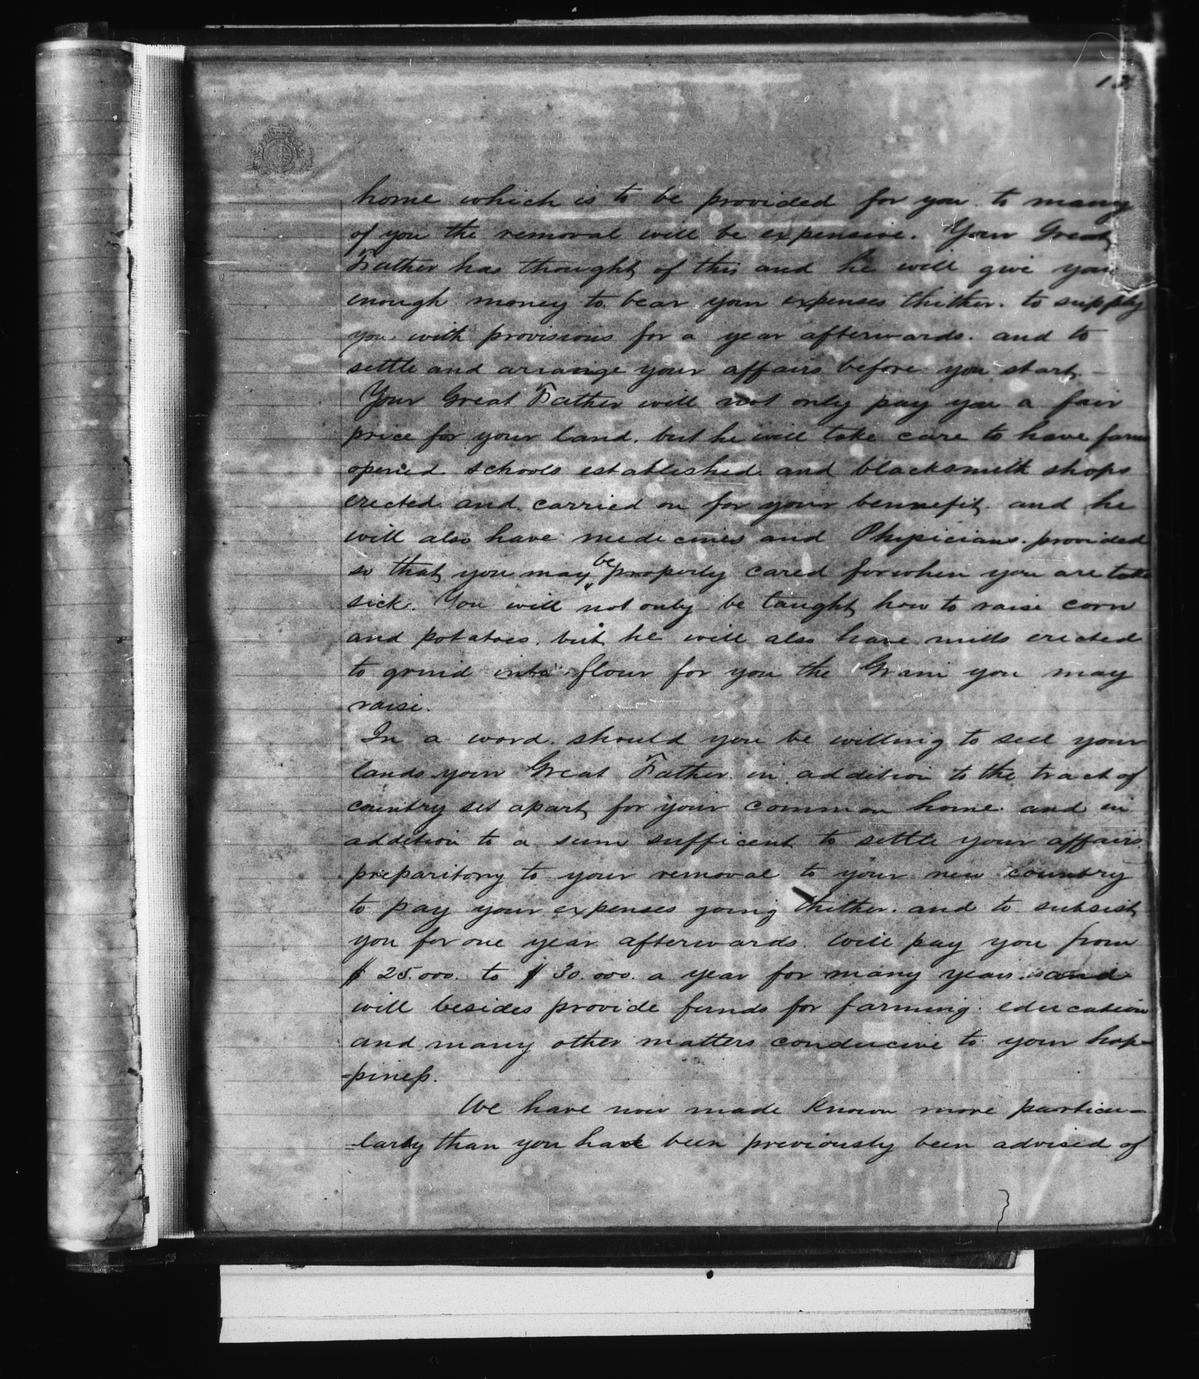 13
home which is to be provided for you to many
of you the removal will be expensive. Your Great
Father has thought of this and he will give you
enough money to bear your expenses thither. to supply
you with provisions for a year afterwards. and to
settle and arrange your affairs before you start
Your Great Father will not only pay you a fair
price for your land. but he will take care to have farms
opened schools established and blacksmith shops
erected and carried on for your bennefit. and he
will also have medecines and Physicians provided
so that you may be properly cared for when you are
sick. You will not only be taught how to raise corn
and potatoes. but he will also have mills erected
to grind into flour for you the Grain you may
raise.
In a word. should you be willing to sell your
lands your Great Father in addition to the tract of
country set apart for your common home and in
addition to a sum sufficent to settle your affairs
preparitory to your removal to your new country
to pay your expenses going thither. and to subsist
you for one year afterwards. Will pay you from
$25.000. to $30.000. a year for many years. and
will besides provide funds for farming. education
and many other matters conducive to your hap-
-piness.
We have now made Known more particu-
-larly than you have been previously been advised of